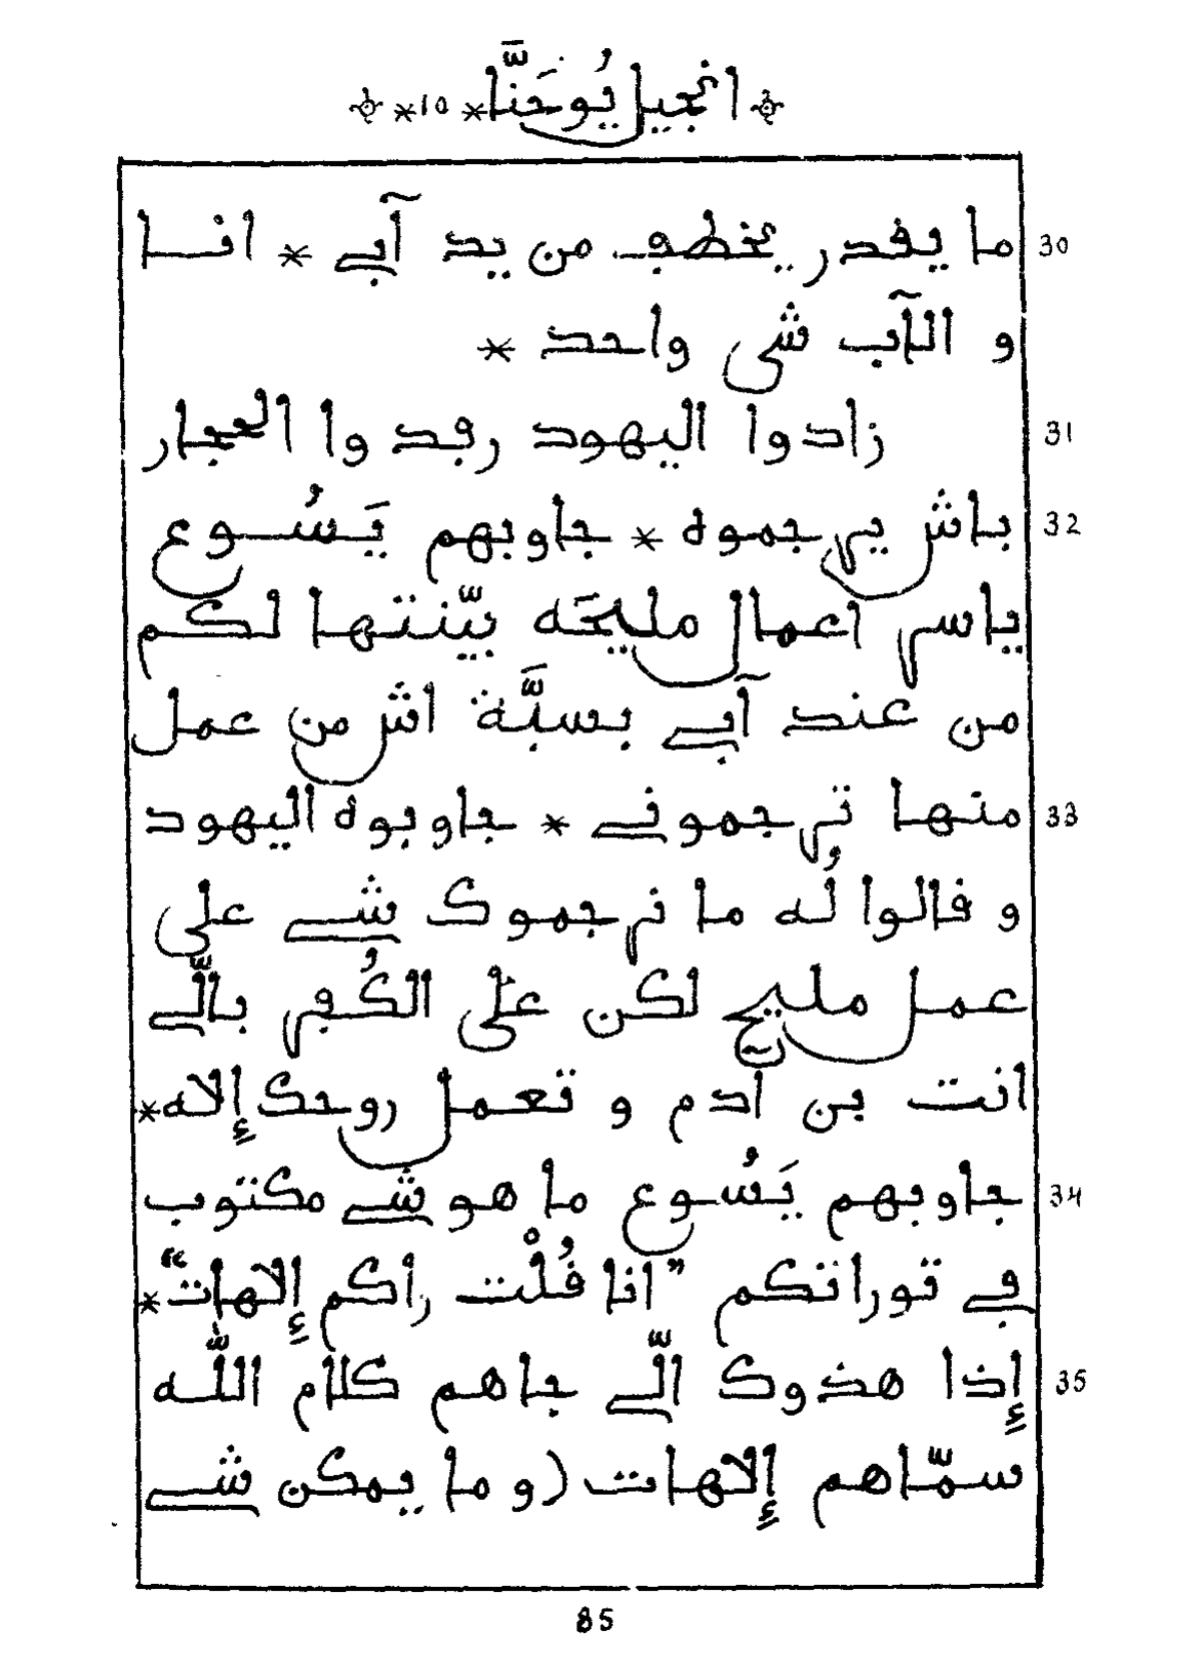 انجيل يُوحَنَّا * 10 *
30 ما يڧدر يخطڢ من يد آبي * انا
و الآب شى واحد *
31 زادوا اليهود رڢدوا الحجار
32 باش يرجموه * جاوبهم يَسُوع
ياسر اعمال مليحَه بيّنتها لكم
من عند آبي بسبَّة اش من عمل
33 منها ترجموني * جاوبوه اليهود
و ڧالوا لُه ما نرجموك شي على
عمل مليح لكن على الكُڢر بالّي
انت بن آدم و تعمل روحك إلاه *
34 جاوبهم يَسُوع ما هو شي مكتوب
ڢي توراتكم "انا ڧُلْت راكم إلاهات" *
35 إذا هذوك الّي جاهم كلام اللّه
سمّاهم إلاهات (و ما يمكن شي
85